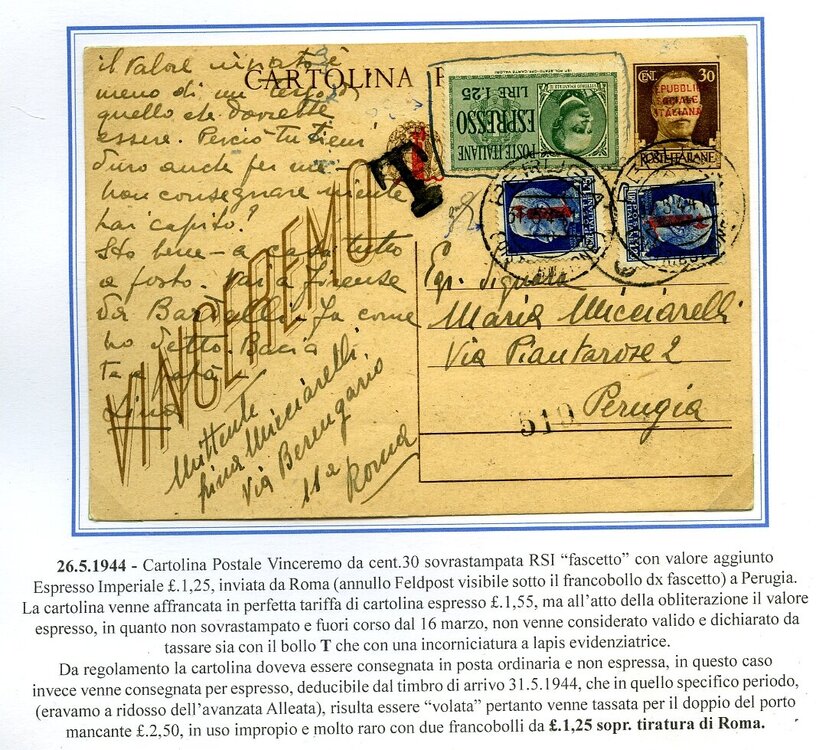 il valore
meno di un terzo di
quello che dovrebbe
essere. Perciò tu tieni
duro anche per me –
non consegnare niente
hai capito?
Sto bene – a casa tutto
a posto. Vai a Firenze
da Bartalelli. Fa come
ho detto. Bacia
Lina
VINCEREMO
Mittente
Lina Micciarelli
Via Berengario
11a
Roma
CARTOLINA P
T
POSTE ITALIANE
ESPRESSO
LIRE 1,25
CENT. 30
REPUBBLICA
SOCIALE
ITALIANA
POSTE ITALIANE
PERUGIA
Egr. Signora
Maria Micciarelli
Via Piantarose 2
Perugia
519
26.5.1944 - Cartolina Postale Vinceremo da cent.30 sovrastampata RSI “fascetto” con valore aggiunto
Espresso Imperiale £.1,25, inviata da Roma (annullo Feldpost visibile sotto il francobollo dx fascetto) a Perugia.
La cartolina venne affrancata in perfetta tariffa di cartolina espresso £.1,55, ma all’atto della obliterazione il valore
espresso, in quanto non sovrastampato e fuori corso dal 16 marzo, non venne considerato valido e dichiarato da
tassare sia con il bollo T che con una incorniciatura a lapis evidenziatrice.
Da regolamento la cartolina doveva essere consegnata in posta ordinaria e non espressa, in questo caso
invece venne consegnata per espresso, deducibile dal timbro di arrivo 31.5.1944, che in quello specifico periodo,
(eravamo a ridosso dell’avanzata Alleata), risulta essere “volata” pertanto venne tassata per il doppio del porto
mancante £.2,50, in uso improprio e molto raro con due francobolli da £.1,25 sopr. tiratura di Roma.